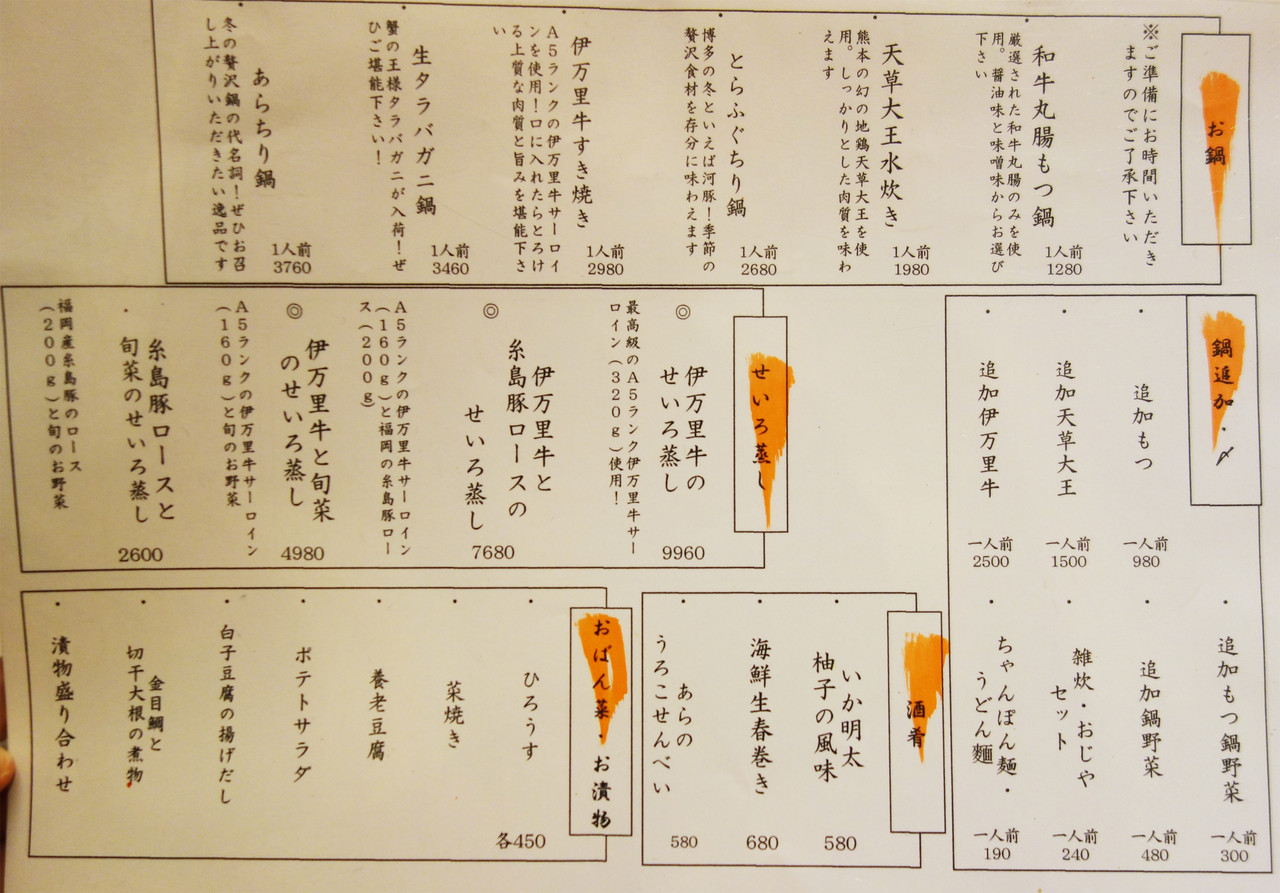 お鍋
※ご準備にお時間いただき
ますのでご了承下さい
・和牛丸腸もつ鍋
1人前
1280
厳選された和牛丸腸のみを使
用。醤油味と味噌味からお選び
下さい
・天草大王水炊き
1人前
1980
熊本の幻の地鶏天草大王を使
用。しっかりとした肉質を味わ
えます
・とらふぐちり鍋
1人前
2680
博多の冬といえば河豚！季節の
贅沢食材を存分に味わえます
・伊万里牛すき焼き
1人前
2980
A5ランクの伊万里牛サーロイ
ンを使用！口に入れたらとろけ
る上質な肉質と旨みを堪能下さ
い
・生タラバガニ鍋
1人前
3460
蟹の王様タラバガニが入荷！ぜ
ひご堪能下さい！
・あらちり鍋
1人前
3760
冬の贅沢鍋の代名詞！ぜひお召
し上がりいただきたい逸品です
鍋追加・〆
・追加もつ
一人前
980
・追加天草大王
一人前
1500
・追加伊万里牛
一人前
2500
・追加もつ鍋野菜
一人前
300
・追加鍋野菜
一人前
480
・雑炊・おじや
セット
一人前
240
・ちゃんぽん麺・
うどん麺
一人前
190
せいろ蒸し
◎伊万里牛の
せいろ蒸し
9960
最高級のA5ランク伊万里牛サー
ロイン（320g）使用！
◎伊万里牛と
糸島豚ロースの
せいろ蒸し
7680
A5ランクの伊万里牛サーロイン
（160g）と福岡の糸島豚ロー
ス（200g）
◎伊万里牛と旬菜
のせいろ蒸し
4980
A5ランクの伊万里牛サーロイン
（160g）と旬のお野菜
・糸島豚ロースと
旬菜のせいろ蒸し
2600
福岡産糸島豚のロース
（200g）と旬のお野菜
酒肴
・いか明太
柚子の風味
580
・海鮮生春巻き
680
・あらの
うろこせんべい
580
おばん菜・お漬物
・ひろうす
各450
・菜焼き
・養老豆腐
・ポテトサラダ
・白子豆腐の揚げだし
・金目鯛と
切干大根の煮物
・漬物盛り合わせ